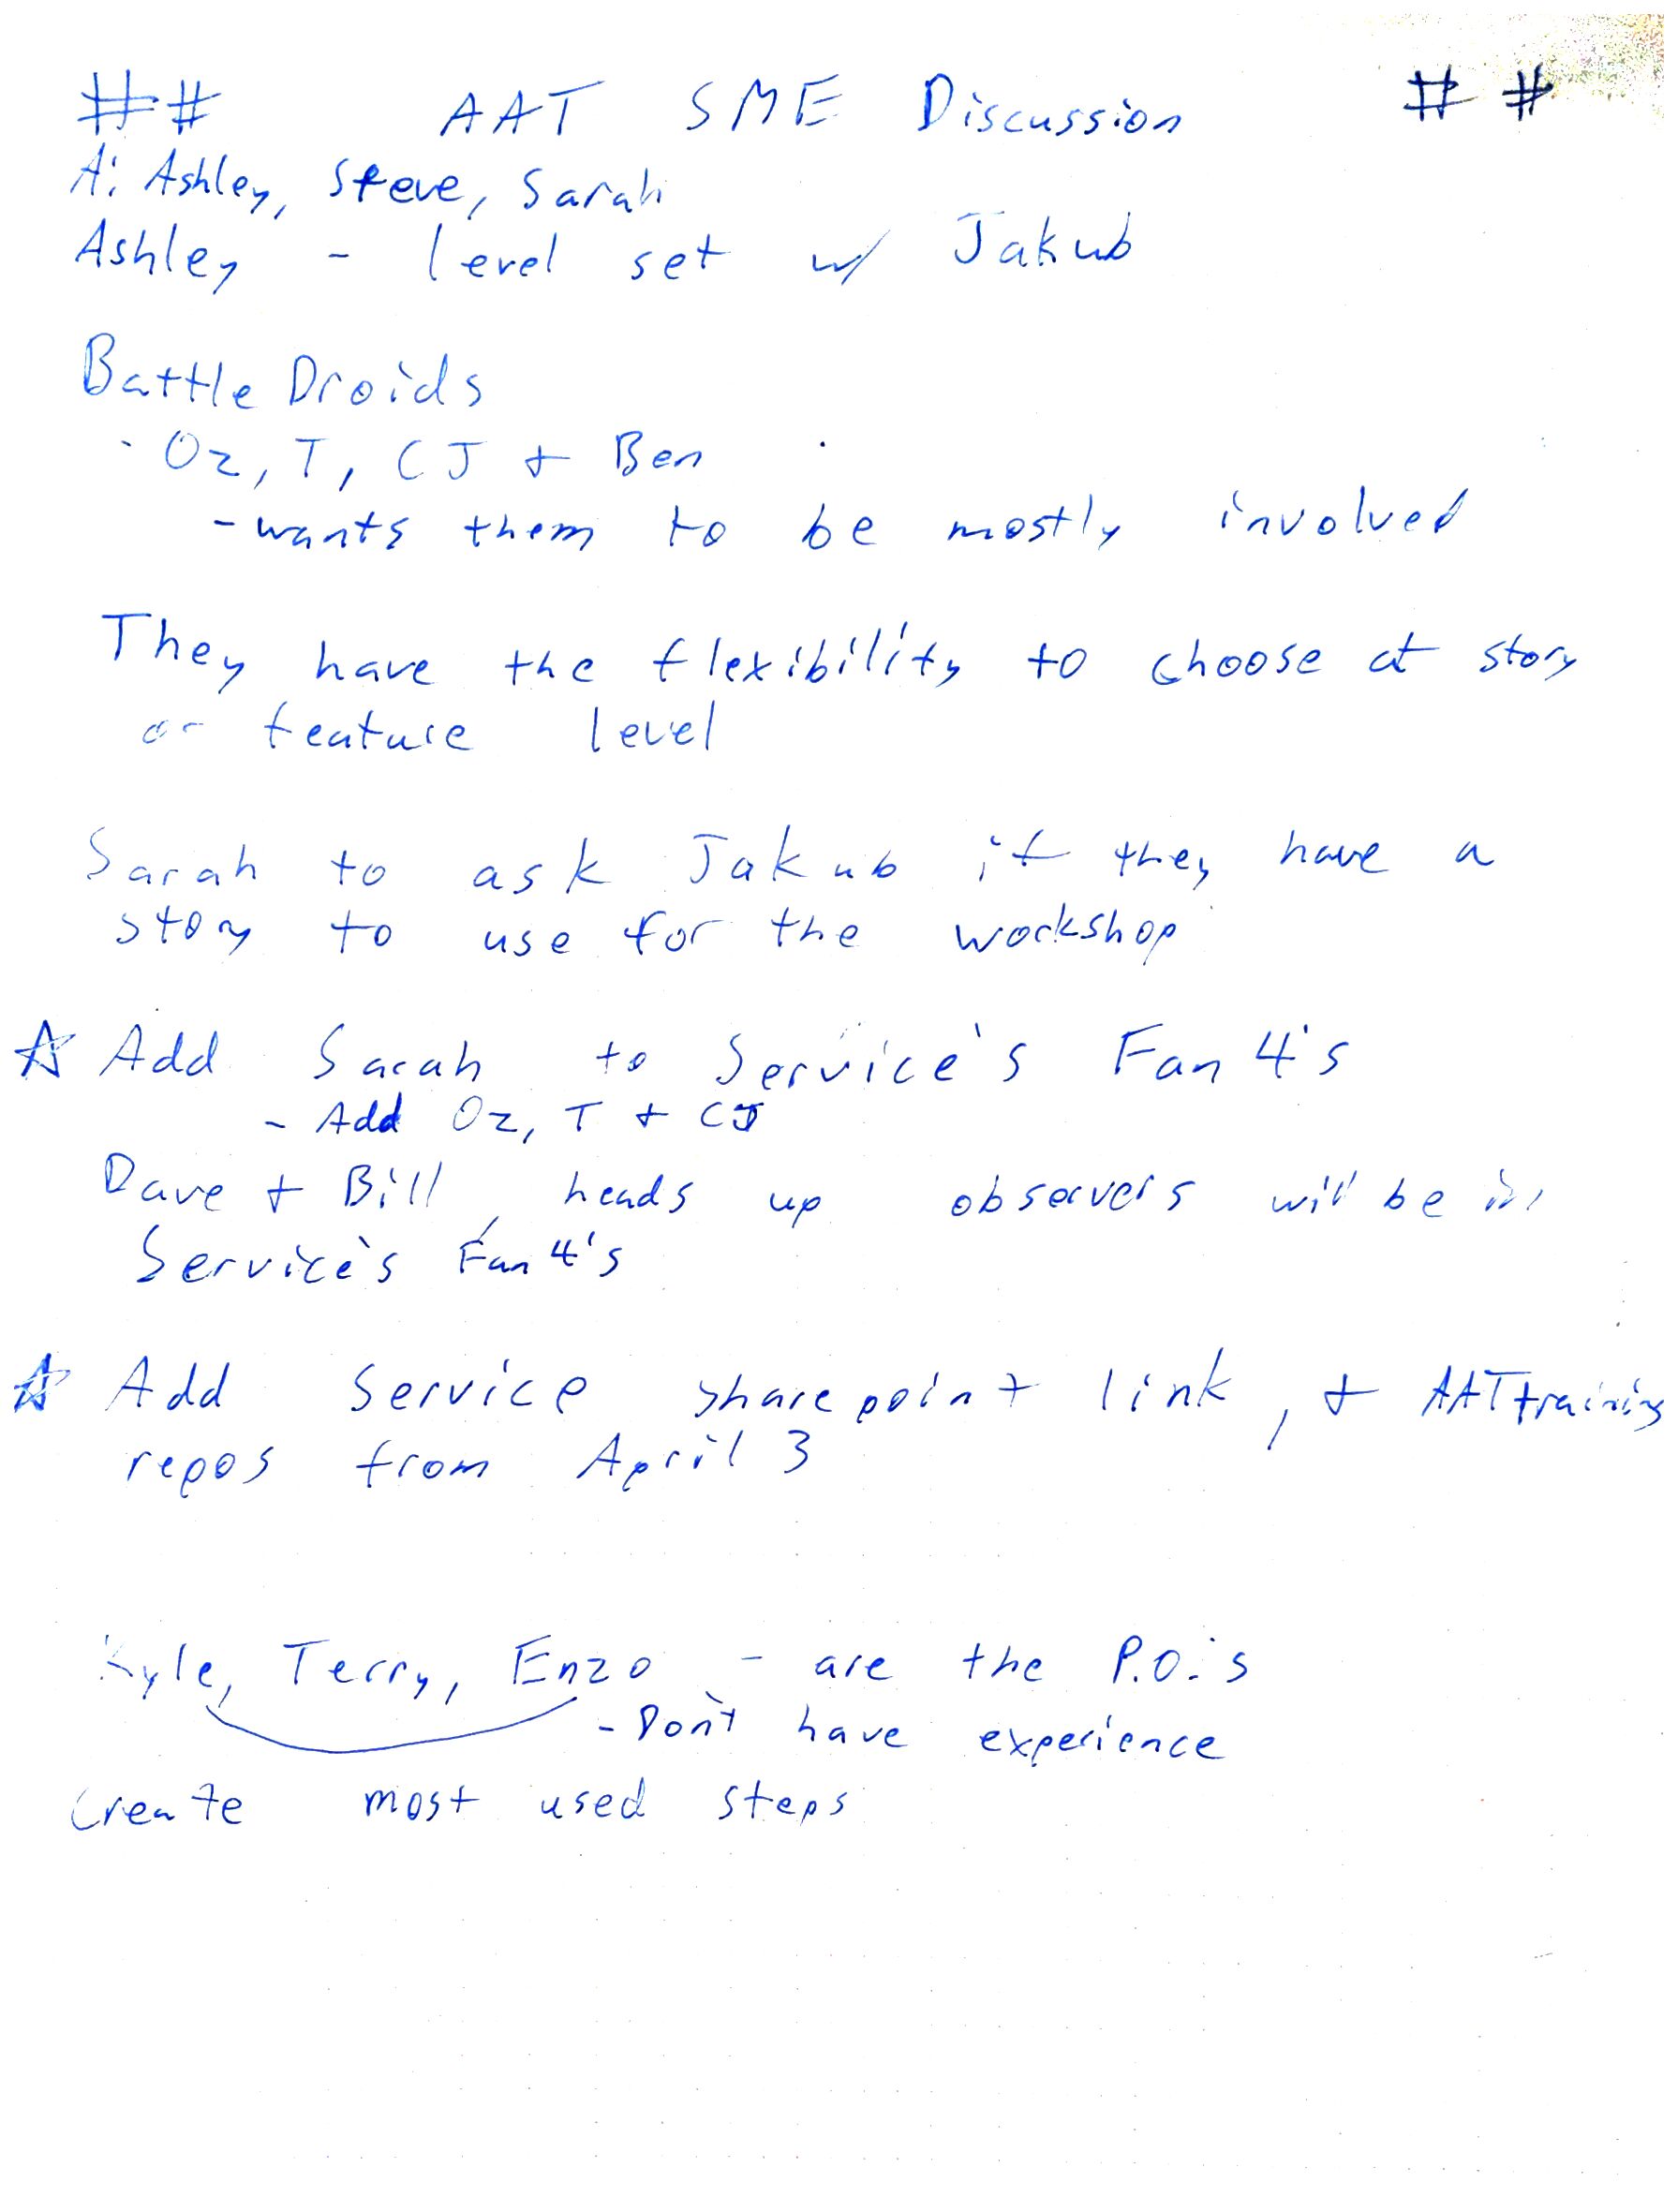 ## AAT SME Discussion ##
A: Ashley, Steve, Sarah
Ashley - level set w/ Jakub
Battle Droids
- Oz, T, CJ + Ben
- wants them to be mostly involved
They have the flexibility to choose at story
or feature level
Sarah to ask Jakub if they have a
story to use for the workshop
☆ Add Sarah to Service's Fan 4's
- Add Oz, T + CJ
Dave + Bill, heads up observers will be in
Service's Fan 4's
☆ Add Service sharepoint link, + AAT training
repos from April 3
Kyle, Terry, Enzo - are the P.O.'s
- Don't have experience
Create most used steps